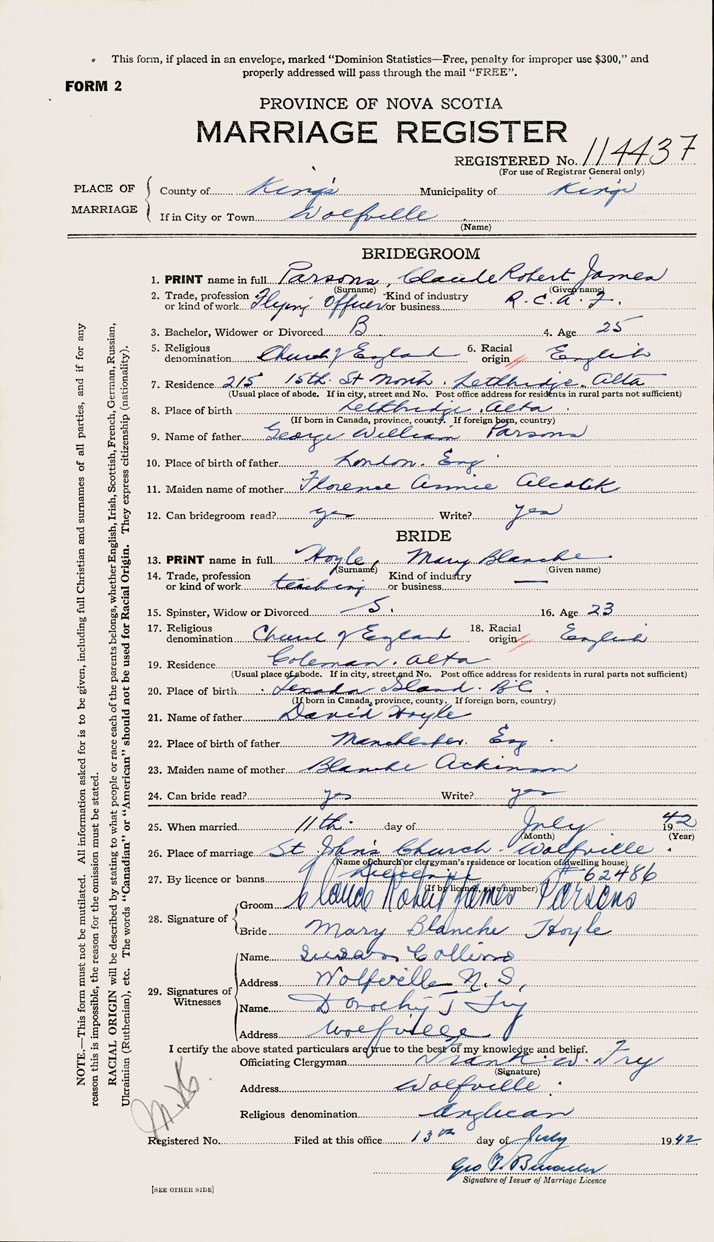 This form, if placed in an envelope, marked "Dominion Statistics—Free, penalty for improper use $300," and
properly addressed will pass through the mail "FREE".
FORM 2
PROVINCE OF NOVA SCOTIA
MARRIAGE REGISTER
REGISTERED No. 114437
(For use of Registrar General only)
PLACE OF MARRIAGE
County of King's Municipality of King's
If in City or Town Wolfville
(Name)
BRIDEGROOM
1. PRINT name in full Parsons, Claude Robert James
(Surname) (Given name)
2. Trade, profession or kind of work Flying Officer Kind of industry or business R.C.A.F.
3. Bachelor, Widower or Divorced B 4. Age 25
5. Religious denomination Church of England 6. Racial origin English
7. Residence 215 15th St North. Lethbridge, Alta
(Usual place of abode. If in city, street and No. Post office address for residents in rural parts not sufficient)
8. Place of birth Lethbridge, Alta.
(If born in Canada, province, county. If foreign born, country)
9. Name of father George William Parsons
10. Place of birth of father London. Eng
11. Maiden name of mother Florence Annie
12. Can bridegroom read? yes Write? yes
BRIDE
13. PRINT name in full Hoyle, Mary Blanche
(Surname) (Given name)
14. Trade, profession or kind of work teaching Kind of industry or business —
15. Spinster, Widow or Divorced S. 16. Age 23
17. Religious denomination Church of England 18. Racial origin English
19. Residence Coleman. Alta
(Usual place of abode. If in city, street and No. Post office address for residents in rural parts not sufficient)
20. Place of birth Texada Island. B.C.
(If born in Canada, province, county. If foreign born, country)
21. Name of father David Hoyle
22. Place of birth of father Manchester. Eng.
23. Maiden name of mother Blanche Atkinson
24. Can bride read? yes Write? yes
25. When married 11th. day of July 1942
(Month) (Year)
26. Place of marriage St John's Church. Wolfville.
(Name of church or clergyman's residence or location of dwelling house)
27. By licence or banns Licence # 62486
(If by licence, give number)
28. Signature of
Groom Claude Robert James Parsons
Bride Mary Blanche Hoyle
29. Signatures of Witnesses
Name Susan Collins
Address Wolfville N.S.
Name Dorothy J Fry
Address Wolfville
I certify the above stated particulars are true to the best of my knowledge and belief.
Officiating Clergyman Frank W. Fry
(Signature)
Address Wolfville.
Religious denomination Anglican
Registered No. Filed at this office 13th day of July 1942
Geo
Signature of Issuer of Marriage Licence
[SEE OTHER SIDE]
NOTE.—This form must not be mutilated. All information asked for is to be given, including full Christian and surnames of all parties, and if for any
reason this is impossible, the reason for the omission must be stated.
RACIAL ORIGIN will be described by stating to what people or race each of the parents belongs, whether English, Irish, Scottish, French, German, Russian,
Ukrainian (Ruthenian), etc. The words "Canadian" or "American" should not be used for Racial Origin. They express citizenship (nationality).